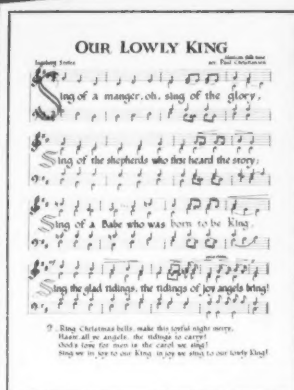 OUR LOWLY KING
arr. Paul Christiansen
Sing of a manger, oh, sing of the glory,
Sing of the shepherds who first heard the story;
Sing of a Babe who was born to be King,
Sing the glad tidings, the tidings of joy angels bring!
2. Ring Christmas bells, make this joyful night merry,
Haste all ye angels, the tidings to carry!
God's love for men is the carol we sing!
Sing we in joy to our King, in joy we sing to our lowly King!